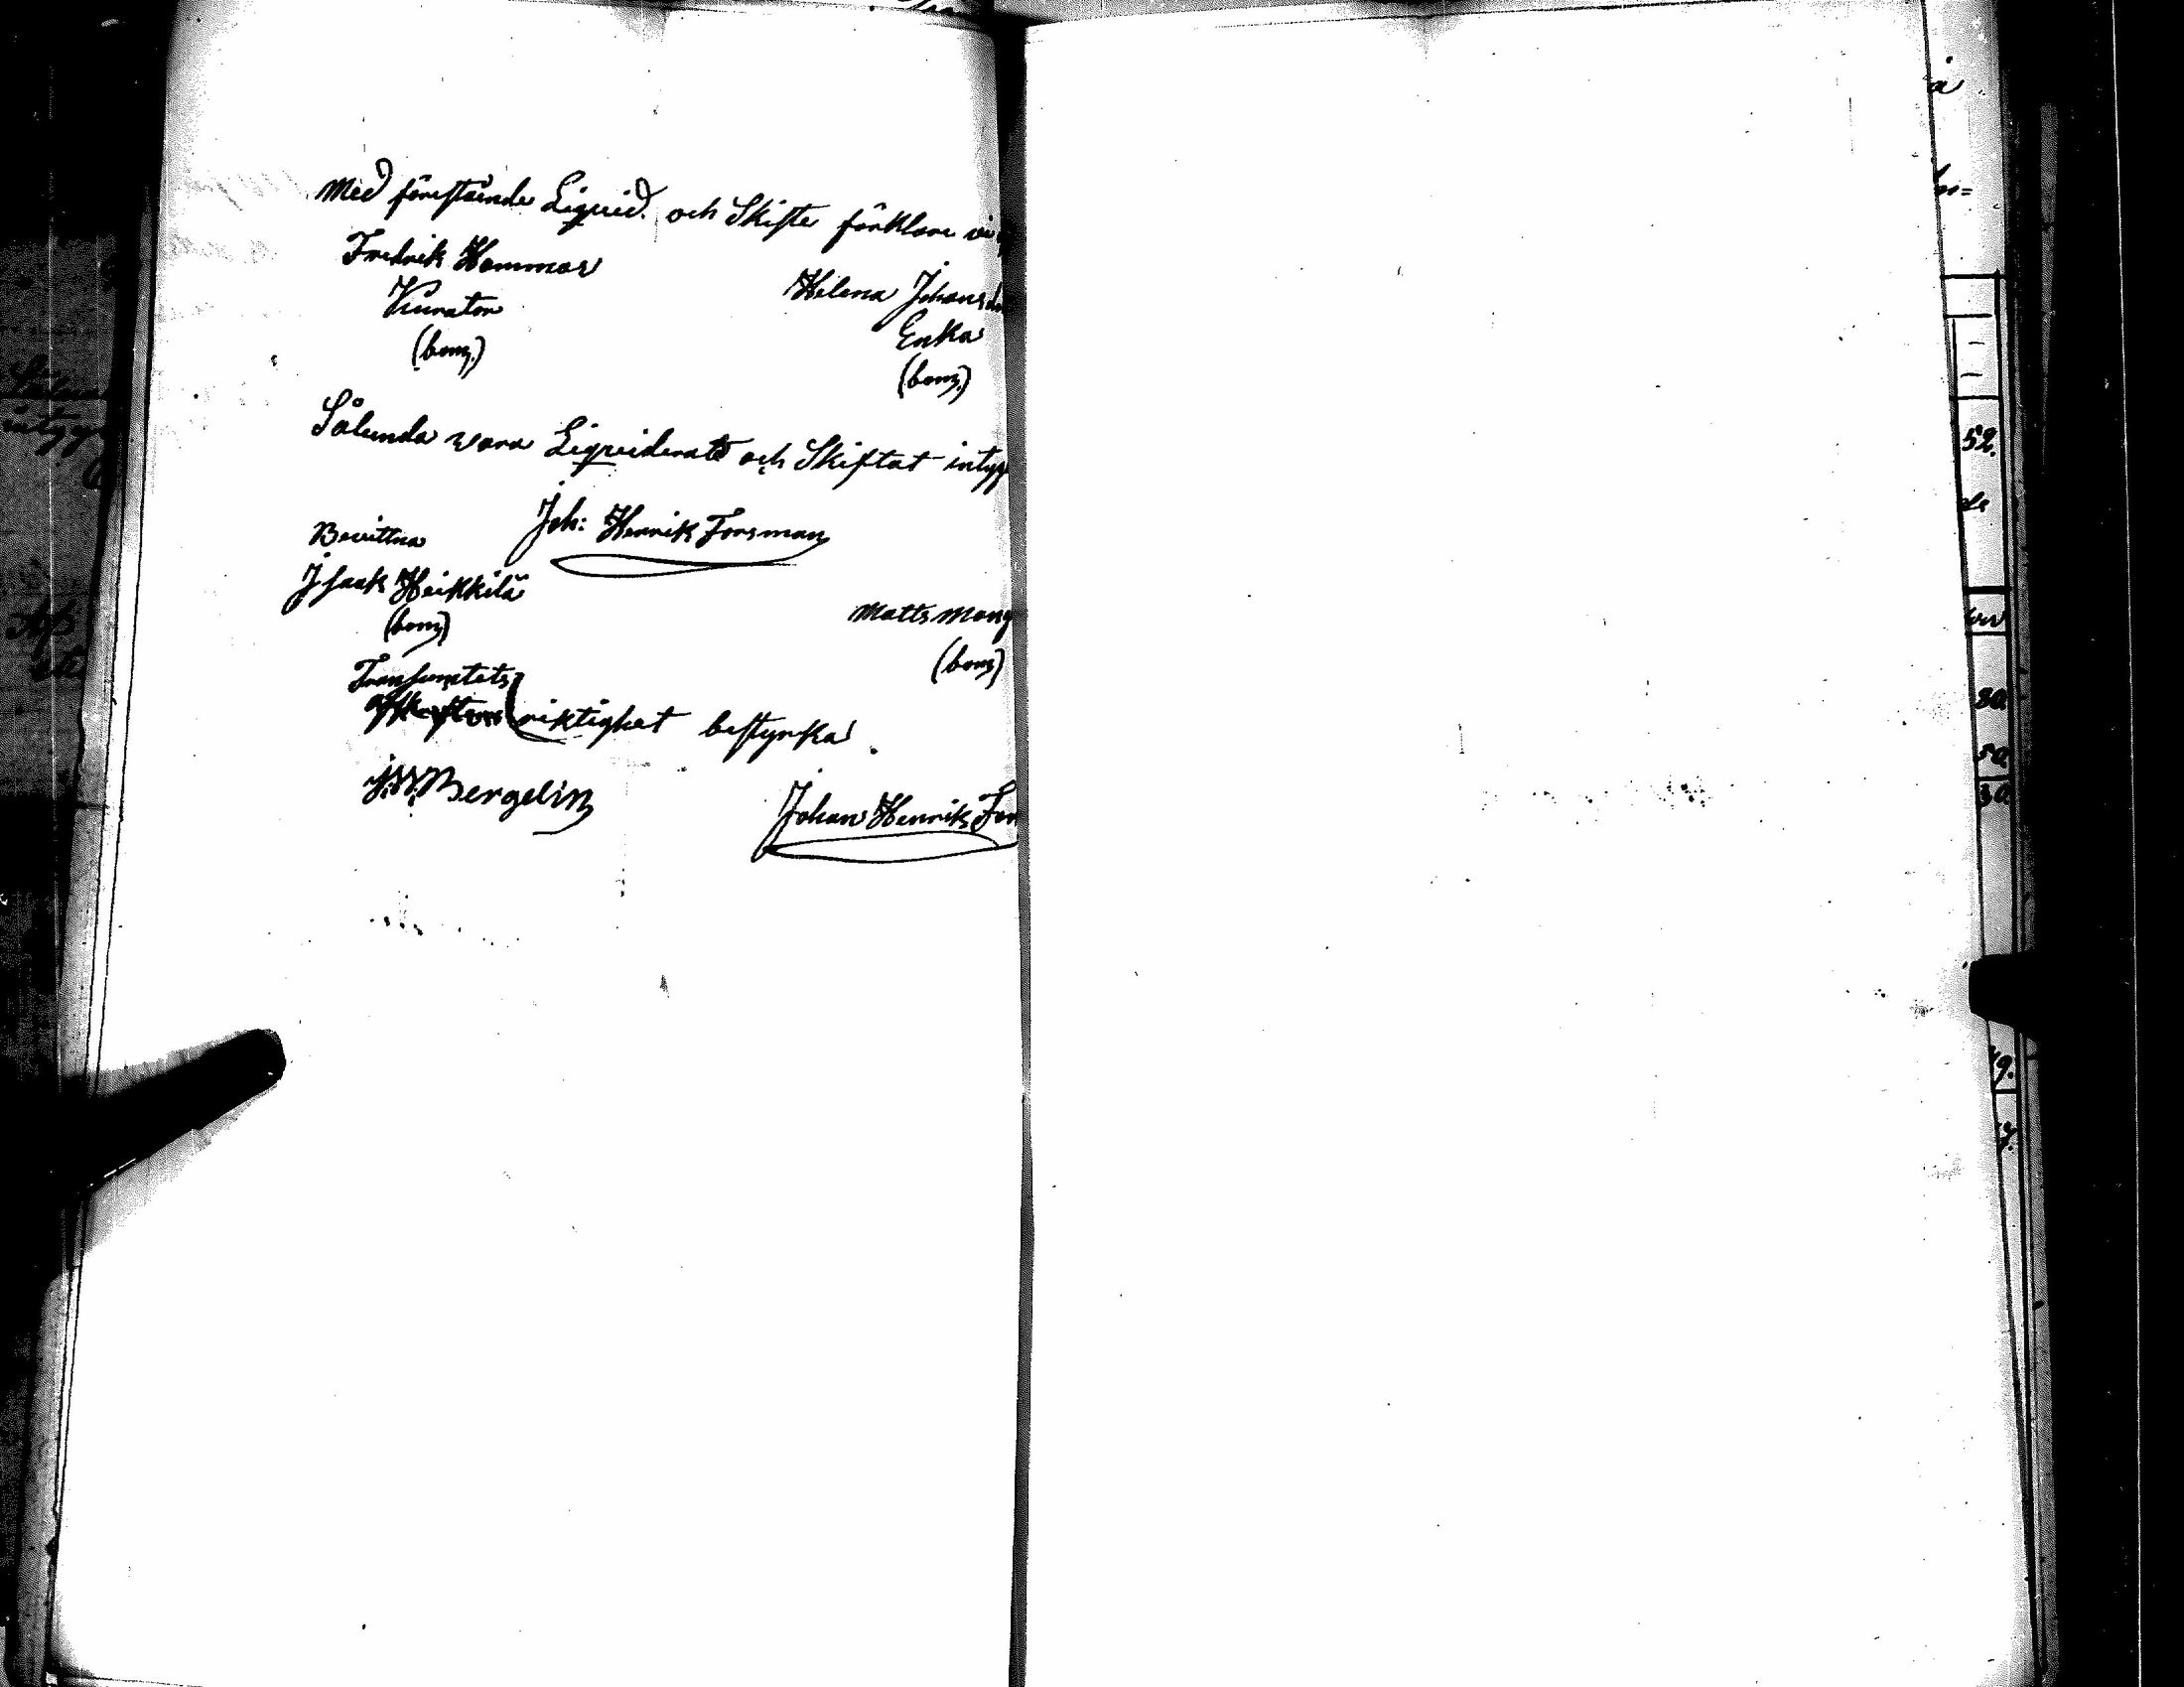 Med förestående Liqvid och Skifte förklare vi
Fredrik Hammar
Kurator
(bom.)
Helena Johans
Enka
(bom.)
Sålunda vara Liqviderat och Skiftat intyg
Joh: Henrik Forsman
Bevittna
Isaak Heikkilä
(bom)
Matts Mang
(bom)
Transumtets
riktighet bestyrka
Bergelin
Johan Henrik For
52.
80.
50.
30.